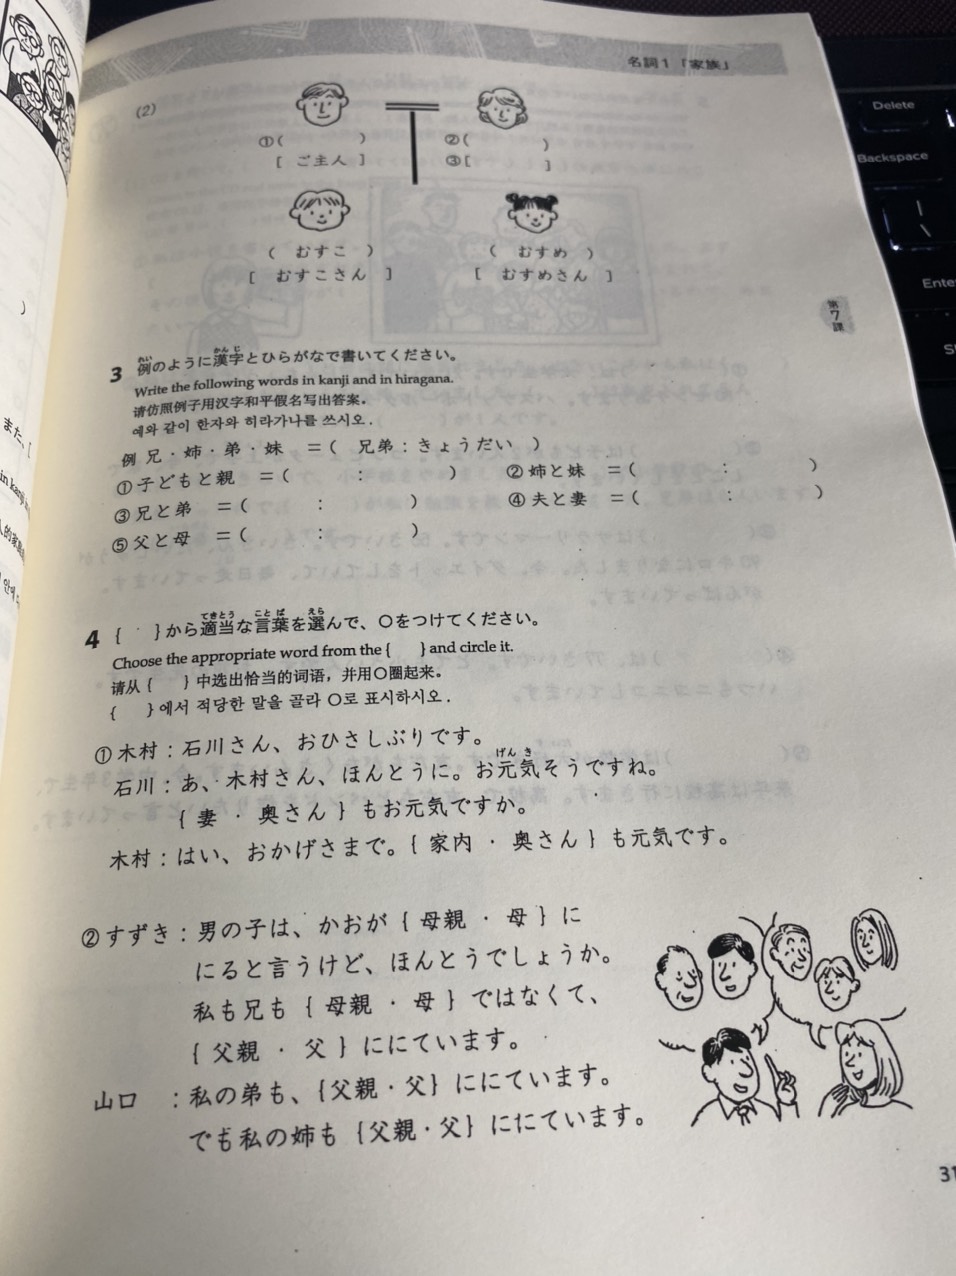 名詞1「家族」
(2)
①(　　　)　②(　　　)
[ ご主人 ]　③[　　　]
( むすこ )　( むすめ )
[ むすこさん ]　[ むすめさん ]
第7課
3 例のように漢字とひらがなで書いてください。
Write the following words in kanji and in hiragana.
请仿照例子用汉字和平假名写出答案。
예와 같이 한자와 히라가나를 쓰시오.
例 兄・姉・弟・妹 ＝( 兄弟：きょうだい )
①子どもと親 ＝(　　：　　)　②姉と妹 ＝(　　：　　)
③兄と弟 ＝(　　：　　)　④夫と妻 ＝(　　：　　)
⑤父と母 ＝(　　：　　)
4 {　　}から適当な言葉を選んで、○をつけてください。
Choose the appropriate word from the {　　} and circle it.
请从 {　　} 中选出恰当的词语，并用○圈起来。
{　　} 에서 적당한 말을 골라 ○로 표시하시오.
①木村：石川さん、おひさしぶりです。
石川：あ、木村さん、ほんとうに。お元気そうですね。
{ 妻 ・ 奥さん } もお元気ですか。
木村：はい、おかげさまで。{ 家内 ・ 奥さん } も元気です。
②すずき：男の子は、かおが { 母親 ・ 母 } に
にると言うけど、ほんとうでしょうか。
私も兄も { 母親 ・ 母 } ではなくて、
{ 父親 ・ 父 } ににています。
山口　：私の弟も、{父親・父} ににています。
でも私の姉も {父親・父} ににています。
31
Delete
Backspace